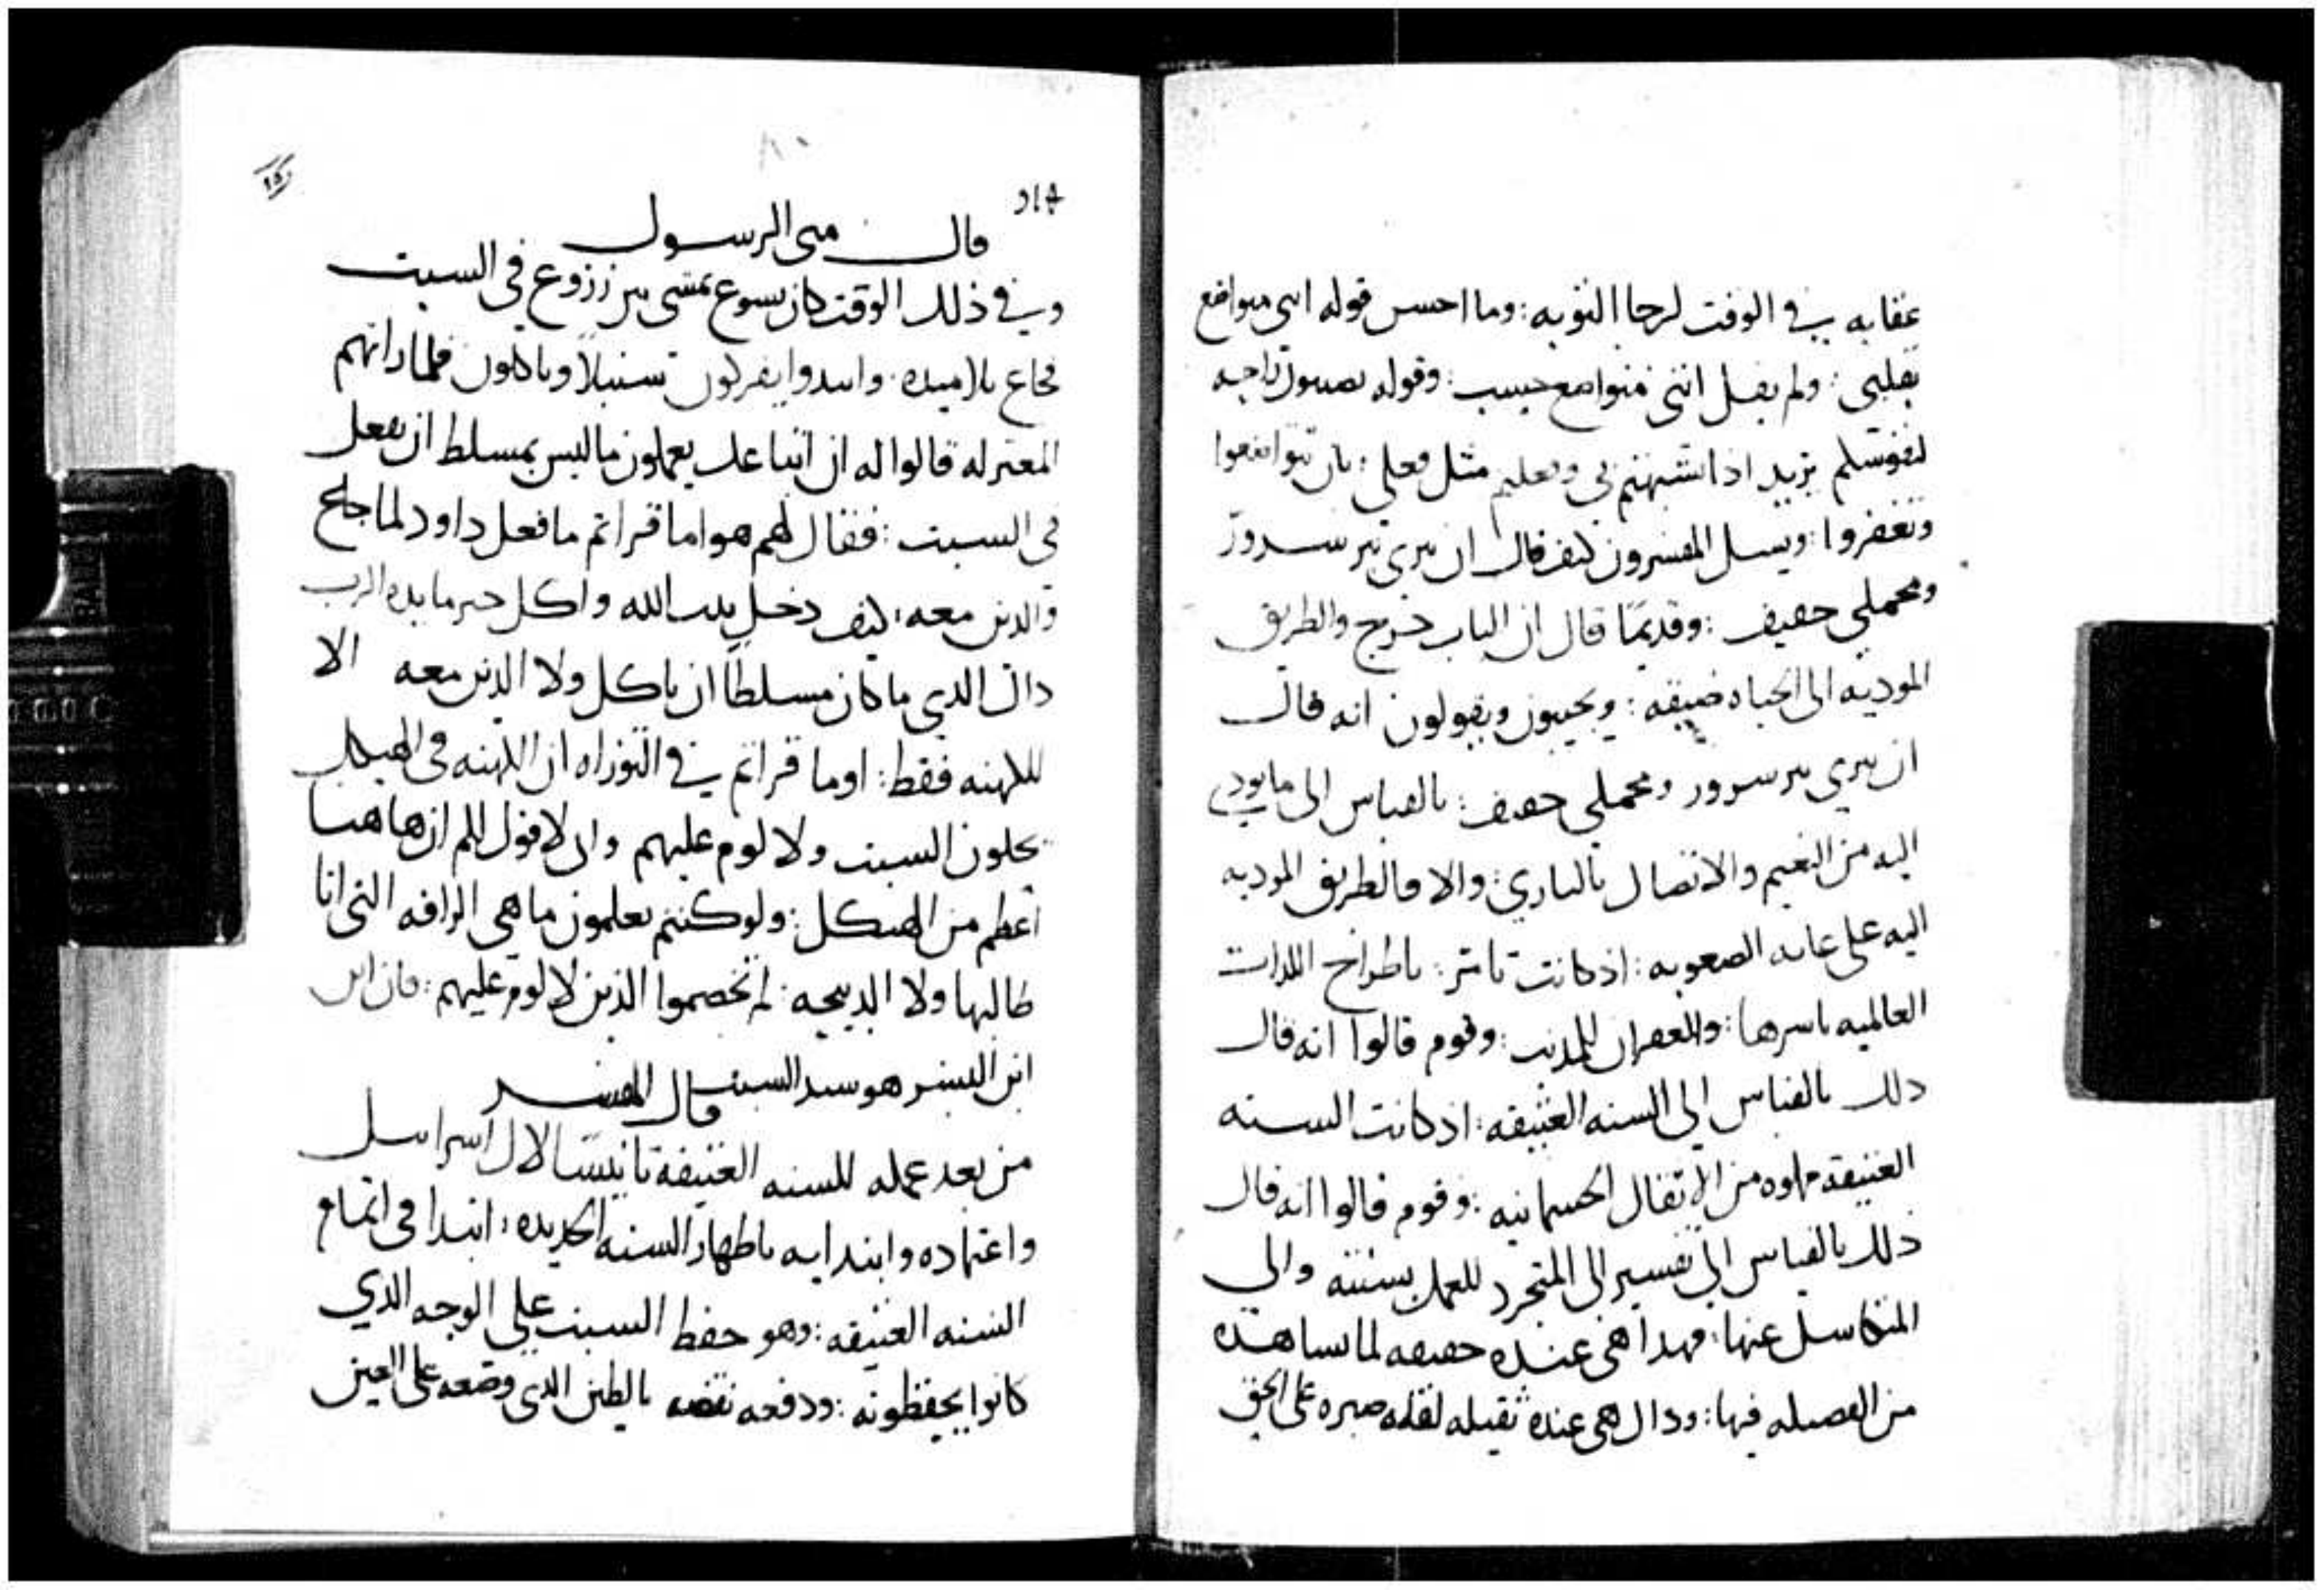 عقابه في الوقت لرجا التوبه: وما احسن قوله انني متواضع
بقلبي: ولم يقل انني متواضع حسب: وقوله تصيبون راحه
لنفوسكم يريد اذا تشبهتم بي وفعلتم مثل فعلي: بان تتواضعوا
وتغفروا: ويسل المفسرون كيف قال ان نيري نير سرور
ومحملي خفيف: وقديمًا قال ان الباب حرج والطريق
الموديه الى الحياه ضيقه: ويجيبون ويقولون انه قال
ان نيري نير سرور ومحملي خفيف: بالقياس الى ما يودي
اليه من النعيم والاتصال بالباري: والا فالطريق الموديه
اليه على غايه الصعوبه: اذ كانت تامر: باطراح اللذات
العالميه باسرها: والغفران للمذنب: وقوم قالوا انه قال
ذلك بالقياس الى السنه العتيقه: اذ كانت السنه
العتيقه مملوه من الاثقال الجسمانيه: وقوم قالوا انه قال
ذلك بالقياس الى نفسين الى المتجرد للعمل بسنته والى
المتكاسل عنها: فهذا هي عنده خفيفه لما يشاهده
من الفضيله فيها: وذاك هي عنده ثقيله لقله صبره على الحق
قال متى الرسول
وفي ذلك الوقت كان يسوع يمشي بين زروع في السبت
فجاع تلاميذه: وابتدوا يفركون سنبلاً وياكلون فلما راتهم
المعتزله قالوا له ان اتباعك يعملون ما ليس بمسلط ان يفعل
في السبت: فقال لهم هو اما قراتم ما فعل داود لما جاع
والذين معه: كيف دخل بيت الله واكل خبز مايده الرب
ذاك الذي ما كان مسلطًا ان ياكل ولا الذين معه الا
للكهنه فقط: او ما قراتم في التوراه ان الكهنه في الهيكل
يحلون السبت ولا لوم عليهم واني لاقول لكم ان هاهنا
اعظم من الهيكل: ولو كنتم تعلمون ما هي الرافه التي انا
طالبها ولا الذبيحه: لم تخصموا الذين لا لوم عليهم: فان ابن
ابن البشر هو سيد السبت
قال المفسر
من بعد عمله للسنه العتيقه تانيسًا لال اسراييل
واعتماده وابتدايه باظهار السنه الجديده: ابتدا في اتمام
السنه العتيقه: وهو حفظ السبت على الوجه الذي
كانوا يحفظونه: ودفعه نقضه بالطين الذي وضعه على العين